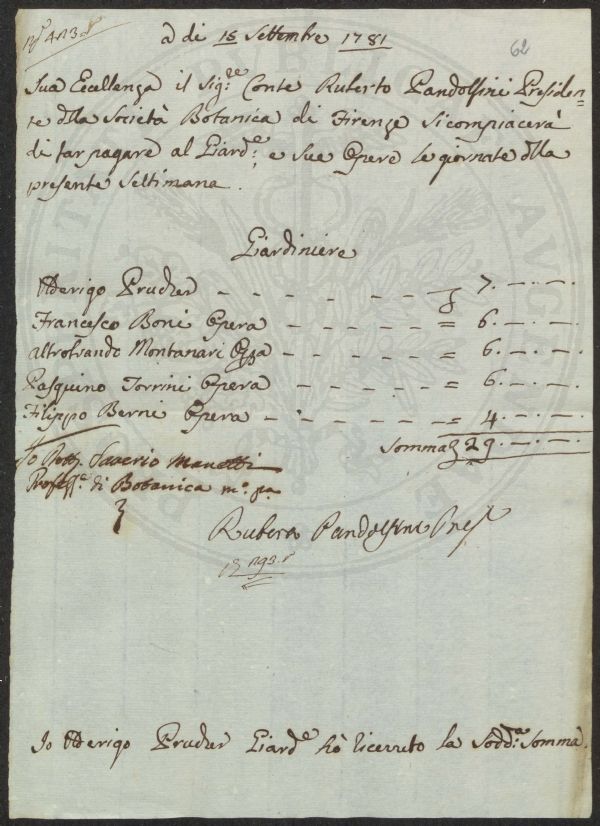 à di 15 Settembre 1781
62
Sua Eccellenza il Sig:re Conte Ruberto Pandolfini Presiden=
te dlla Società Botanica di Firenze si compiacerà
di far pagare al Giard:e, e sue Opere le giornate dlla
presente Settimana.
Giardiniere
Ulderigo Prucker - - - - - - - 7.-.-.
Francesco Boni Opera - - - - - - = 6.-.-.
Altobrando Montanari Opa - - - - - = 6.-.-.
Pasquino Torrini Opera - - - - - - = 6.-.-.
Filippo Berni Opera - - - - - - - = 4.-.-.
Somma 29.-.-.
Io Dott. Saverio Manetti
Profess.e di Botanica mo. pa.
Ruberto Pandolfini Pres.
Io Ulderigo Prucker Giard:e hò ricevuto la Sodd:a Somma.